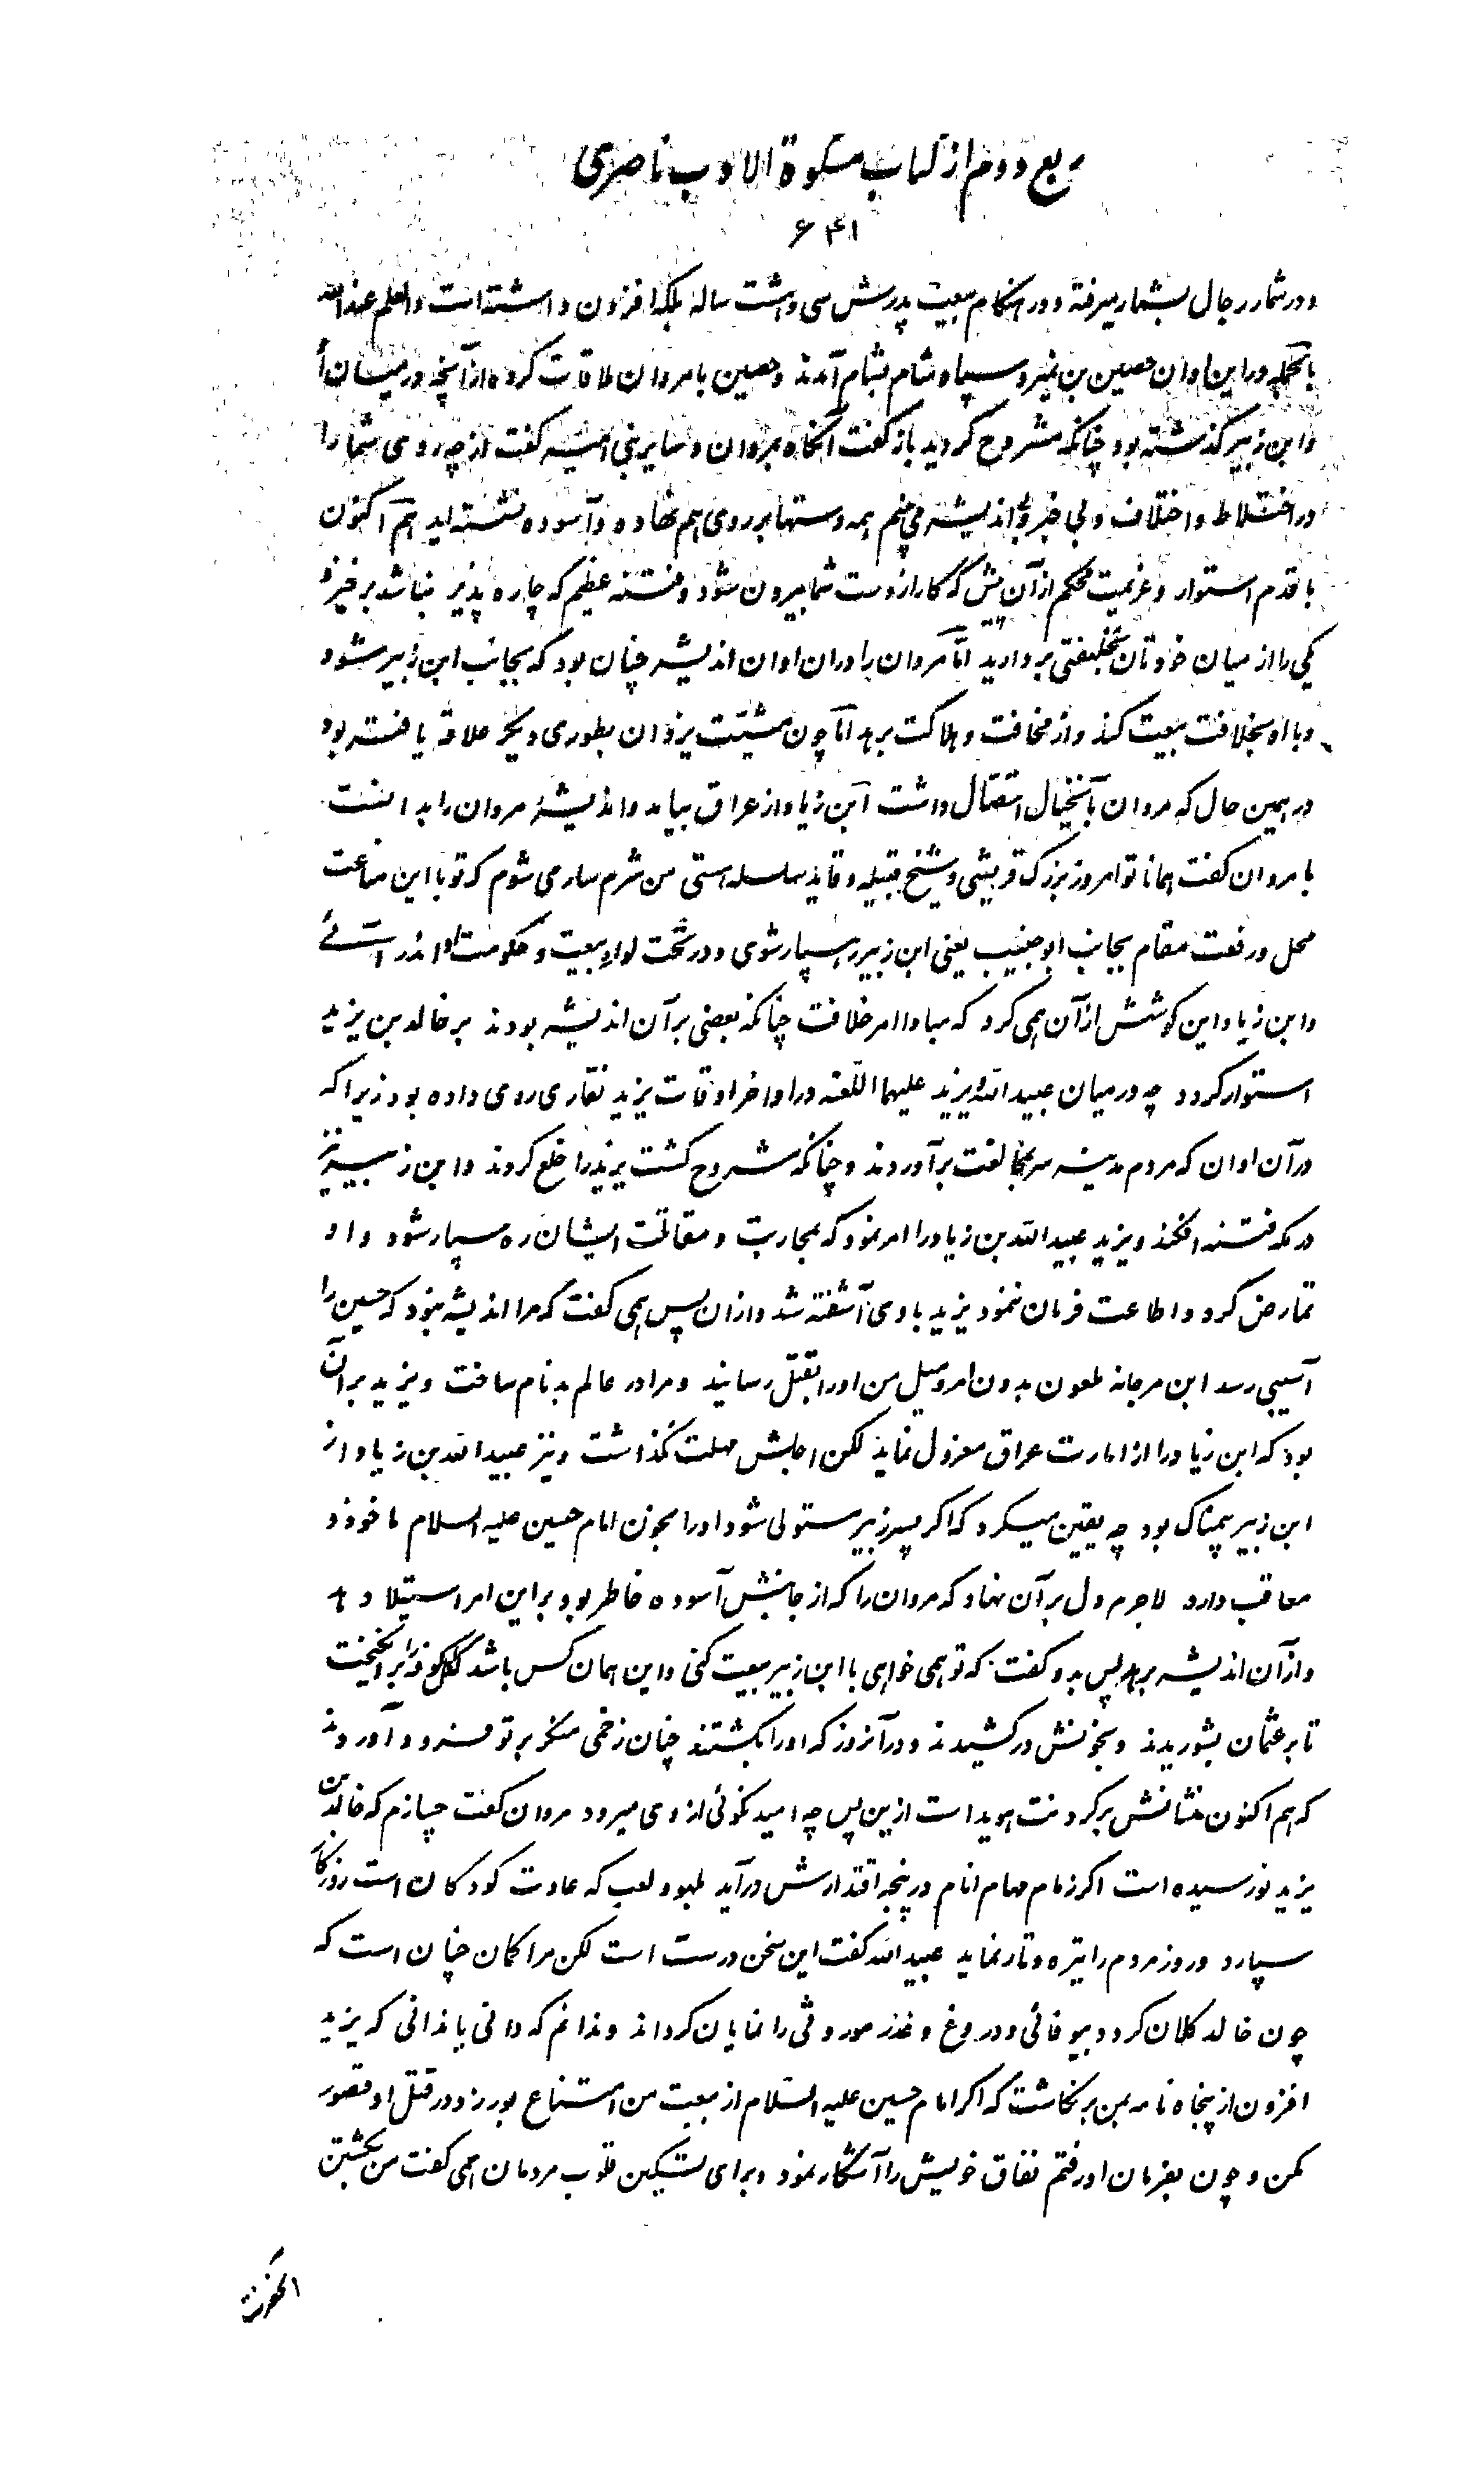 ربع دوم از کتاب مشکوة الادب ناصری
۶۴۱
و در شمار رجال بشمار میرفته و در هنگام بیعت پدرش سی و هشت ساله بلکه افزون داشته است والعلم عندالله
بالجمله در این اوان حصین بن نمیر و سپاه شام بشام آمدند و حصین با مروان ملاقات کرده از آنچه در میان او
و ابن زبیر گذشته بود چنانکه مشروح گردید باز گفت آنگاه بمروان و سایر بنی امیه گفت از چه روی شما را
در اختلاط و اختلاف و بی خبر و بی اندیشه می بینم همه دستها بر روی هم نهاده و آسوده نشسته اید هم اکنون
با قدم استوار و عزیمت محکم از آن پیش که کار از دست شما بیرون شود و فتنه عظیم که چاره پذیر نباشد برخیزد
یکی را از میان خودتان بخلیفتی بردارید امّا مروان را در آن اوان اندیشه چنان بود که بجانب ابن زبیر شود
و با او بخلافت بیعت کند و از مخافت و هلاکت برهد امّا چون مشیّت یزدان بطوری دیگر علاقه یافته بود
در همین حال که مروان بآنخیال اشتغال داشت ابن زیاد از عراق بیامد و اندیشهٔ مروان را بدانست
با مروان گفت همانا تو امروز بزرگ قریشی و شیخ قبیله و قاید سلسله هستی من شرمسار می شوم که تو با این مناعت
محل و رفعت مقام بجانب ابو خبیب یعنی ابن زبیر رهسپار شوی و در تحت لواء بیعت و حکومت او اندر آئی
و ابن زیاد این کوشش از آن همی کرد که مبادا امر خلافت چنانکه بعضی بر آن اندیشه بودند بر خالد بن یزید
استوار گردد چه در میان عبیدالله و یزید علیهما اللّعنه در اواخر اوقات یزید نقاری روی داده بود زیرا که
در آن اوان که مردم مدینه سر بمخالفت برآوردند و چنانکه مشروح گشت یزید را خلع کردند و ابن زبیر نیز
در مکه فتنه افکند و یزید عبیدالله بن زیاد را امر نمود که بمحاربت و مقاتلت ایشان ره سپار شود و او
تمارض کرد و اطاعت فرمان ننمود یزید با وی آشفته شد و از آن پس همی گفت که مرا اندیشه نبود که حسین را
آسیبی رسد ابن مرجانه ملعون بدون امر و میل من او را بقتل رسانید و مرا در عالم بدنام ساخت و یزید بر آن
بود که ابن زیاد را از امارت عراق معزول نماید لکن اجلش مهلت نگذاشت و نیز عبیدالله بن زیاد از
ابن زبیر بیمناک بود چه یقین میکرد که اگر پسر زبیر مستولی شود او را بخون امام حسین علیه السلام ماخوذ و
معاقب دارد لاجرم دل بر آن نهاد که مروان را که از جانبش آسوده خاطر بود بر این امر استیلا دهد
و از آن اندیشه برهد پس بدو گفت که تو همی خواهی با ابن زبیر بیعت کنی و این همان کس باشد که اهل کوفه را برانگیخت
تا بر عثمان بشوریدند و بخونش در کشیدند و در آنروز که او را بکشتند چنان زخمی منکر بر تو فرود آوردند
که هم اکنون نشانش بر گردنت هویداست ازین پس چه امید نکوئی از وی میرود مروان گفت چسازم که خالد بن
یزید نورسیده است اگر زمام مهام انام در پنجه اقتدارش درآید بلهو و لعب که عادت کودکان است روزگار
سپارد و روز مردم را تیره و تار نماید عبیدالله گفت این سخن درست است لکن مرا گمان چنان است که
چون خالد کلان گردد بیوفائی و دروغ و غدر موروثی را نمایان گرداند و ندانم که دانی یا ندانی که یزید
افزون از پنجاه نامه بمن بر نگاشت که اگر امام حسین علیه السّلام از بیعت من امتناع بورزد در قتل او قصور
مکن و چون بفرمان او رفتم نفاق خویش را آشکار نمود و برای تسکین قلوب مردمان همی گفت من بکشتن
آنحضرت